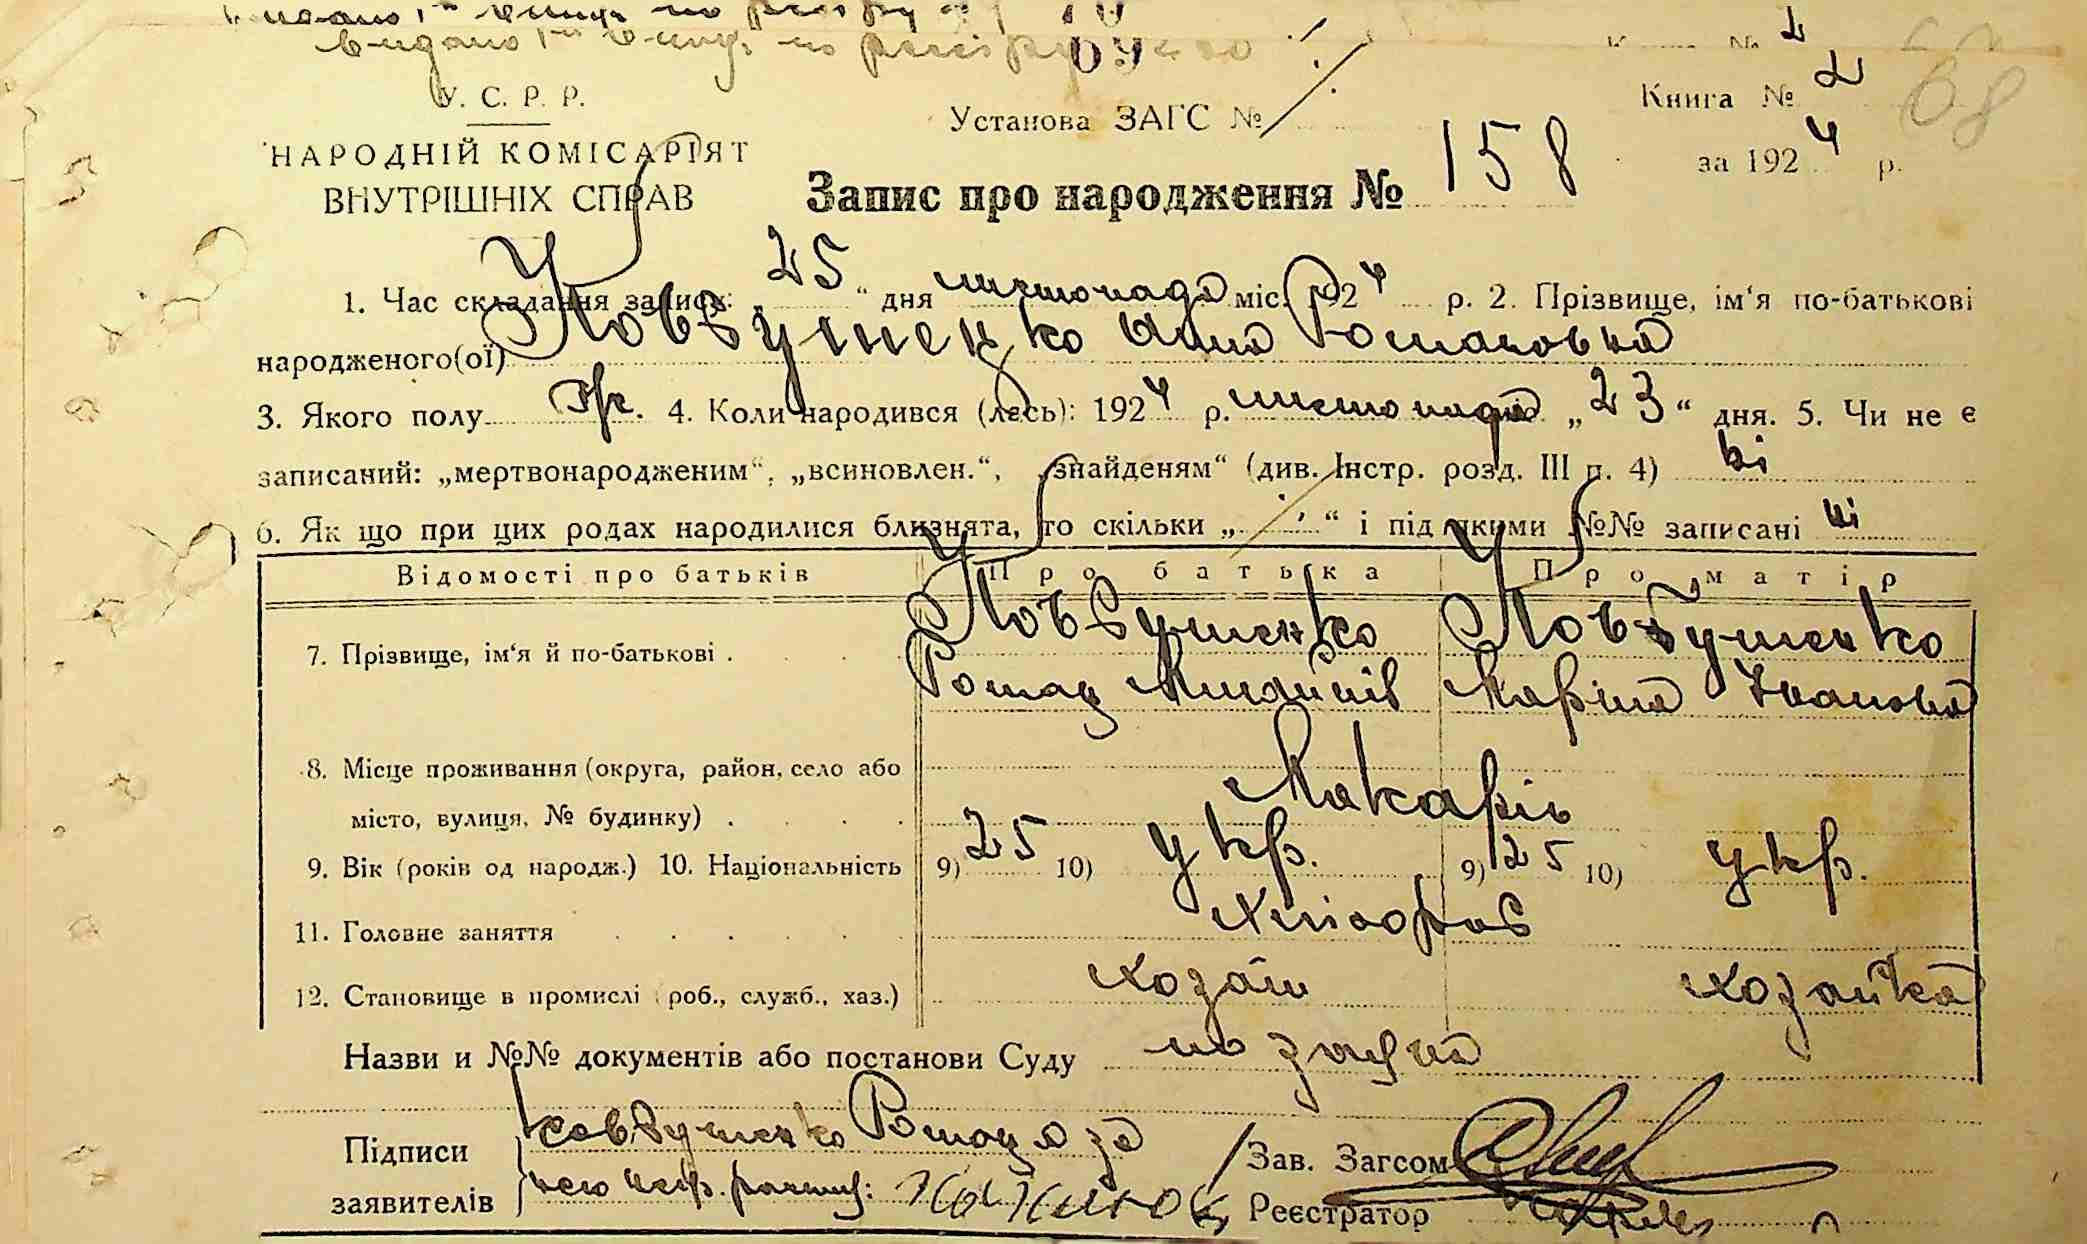 видано
Книга № 2
У. С. Р. Р.
Установа ЗАГС №
Книга № 2
68
НАРОДНІЙ КОМІСАРІЯТ
ВНУТРІШНІХ СПРАВ
за 1924 р.
Запис про народження № 158
1. Час складання запису: „25“ дня листопада міс. 1924 р. 2. Прізвище, ім‘я по-батькові
народженого(ої) Ковбушенко Анна Романовна
3. Якого полу жін. 4. Коли народився (лась): 1924 р. листопада „23“ дня. 5. Чи не є
записаний: „мертвонародженим“, „всиновлен.“, „знайденям“ (див. Інстр. розд. III п. 4) ні
6. Як що при цих родах народилися близнята, то скільки „ “ і під якими №№ записані ні
Відомості про батьків Про батька Про матір
Ковбушенко Ковбушенко
7. Прізвище, ім‘я й по-батькові .
Роман Марія Івановна
8. Місце проживання (округа, район, село або
місто, вулиця, № будинку) . Макарів
9. Вік (років од народж.) 10. Національність 9) 25 10) укр. 9) 25 10) укр.
11. Головне заняття Хлібороб
12. Становище в промислі (роб., служб., хаз.) хозяін хозяйка
Назви и №№ документів або постанови Суду
Підписи Ковбушенко Роман а за
заявителів
Зав. Загсом
Реєстратор